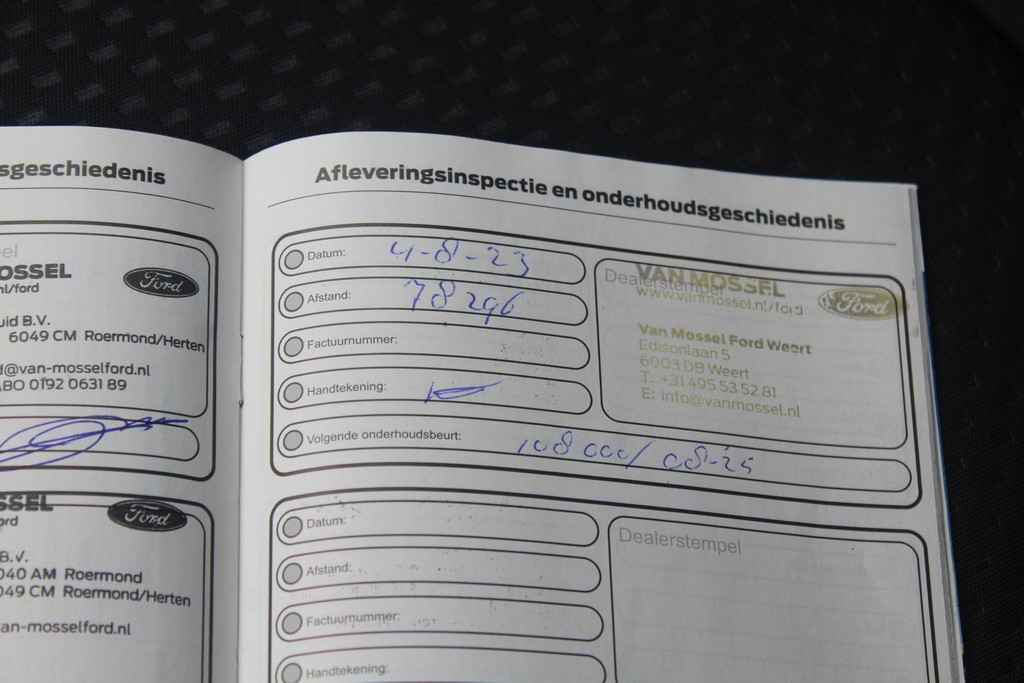 sgeschiedenis
OSSEL
Ford
nl/ford
uid B.V.
6049 CM Roermond/Herten
d@van-mosselford.nl
ABO 0192 0631 89
SSEL
Ford
ord
B.V.
040 AM Roermond
049 CM Roermond/Herten
an-mosselford.nl
Afleveringsinspectie en onderhoudsgeschiedenis
Datum: 4-8-23
Afstand: 78296
Factuurnummer:
Handtekening:
Volgende onderhoudsbeurt: 108 000/ 08-25
Dealerstempel
VAN MOSSEL
www.vanmossel.nl/ford
Ford
Van Mossel Ford Weert
Edisonlaan 5
6003 DB Weert
T: +31 495 53 52 81
E: info@vanmossel.nl
Datum:
Afstand:
Factuurnummer:
Handtekening:
Dealerstempel